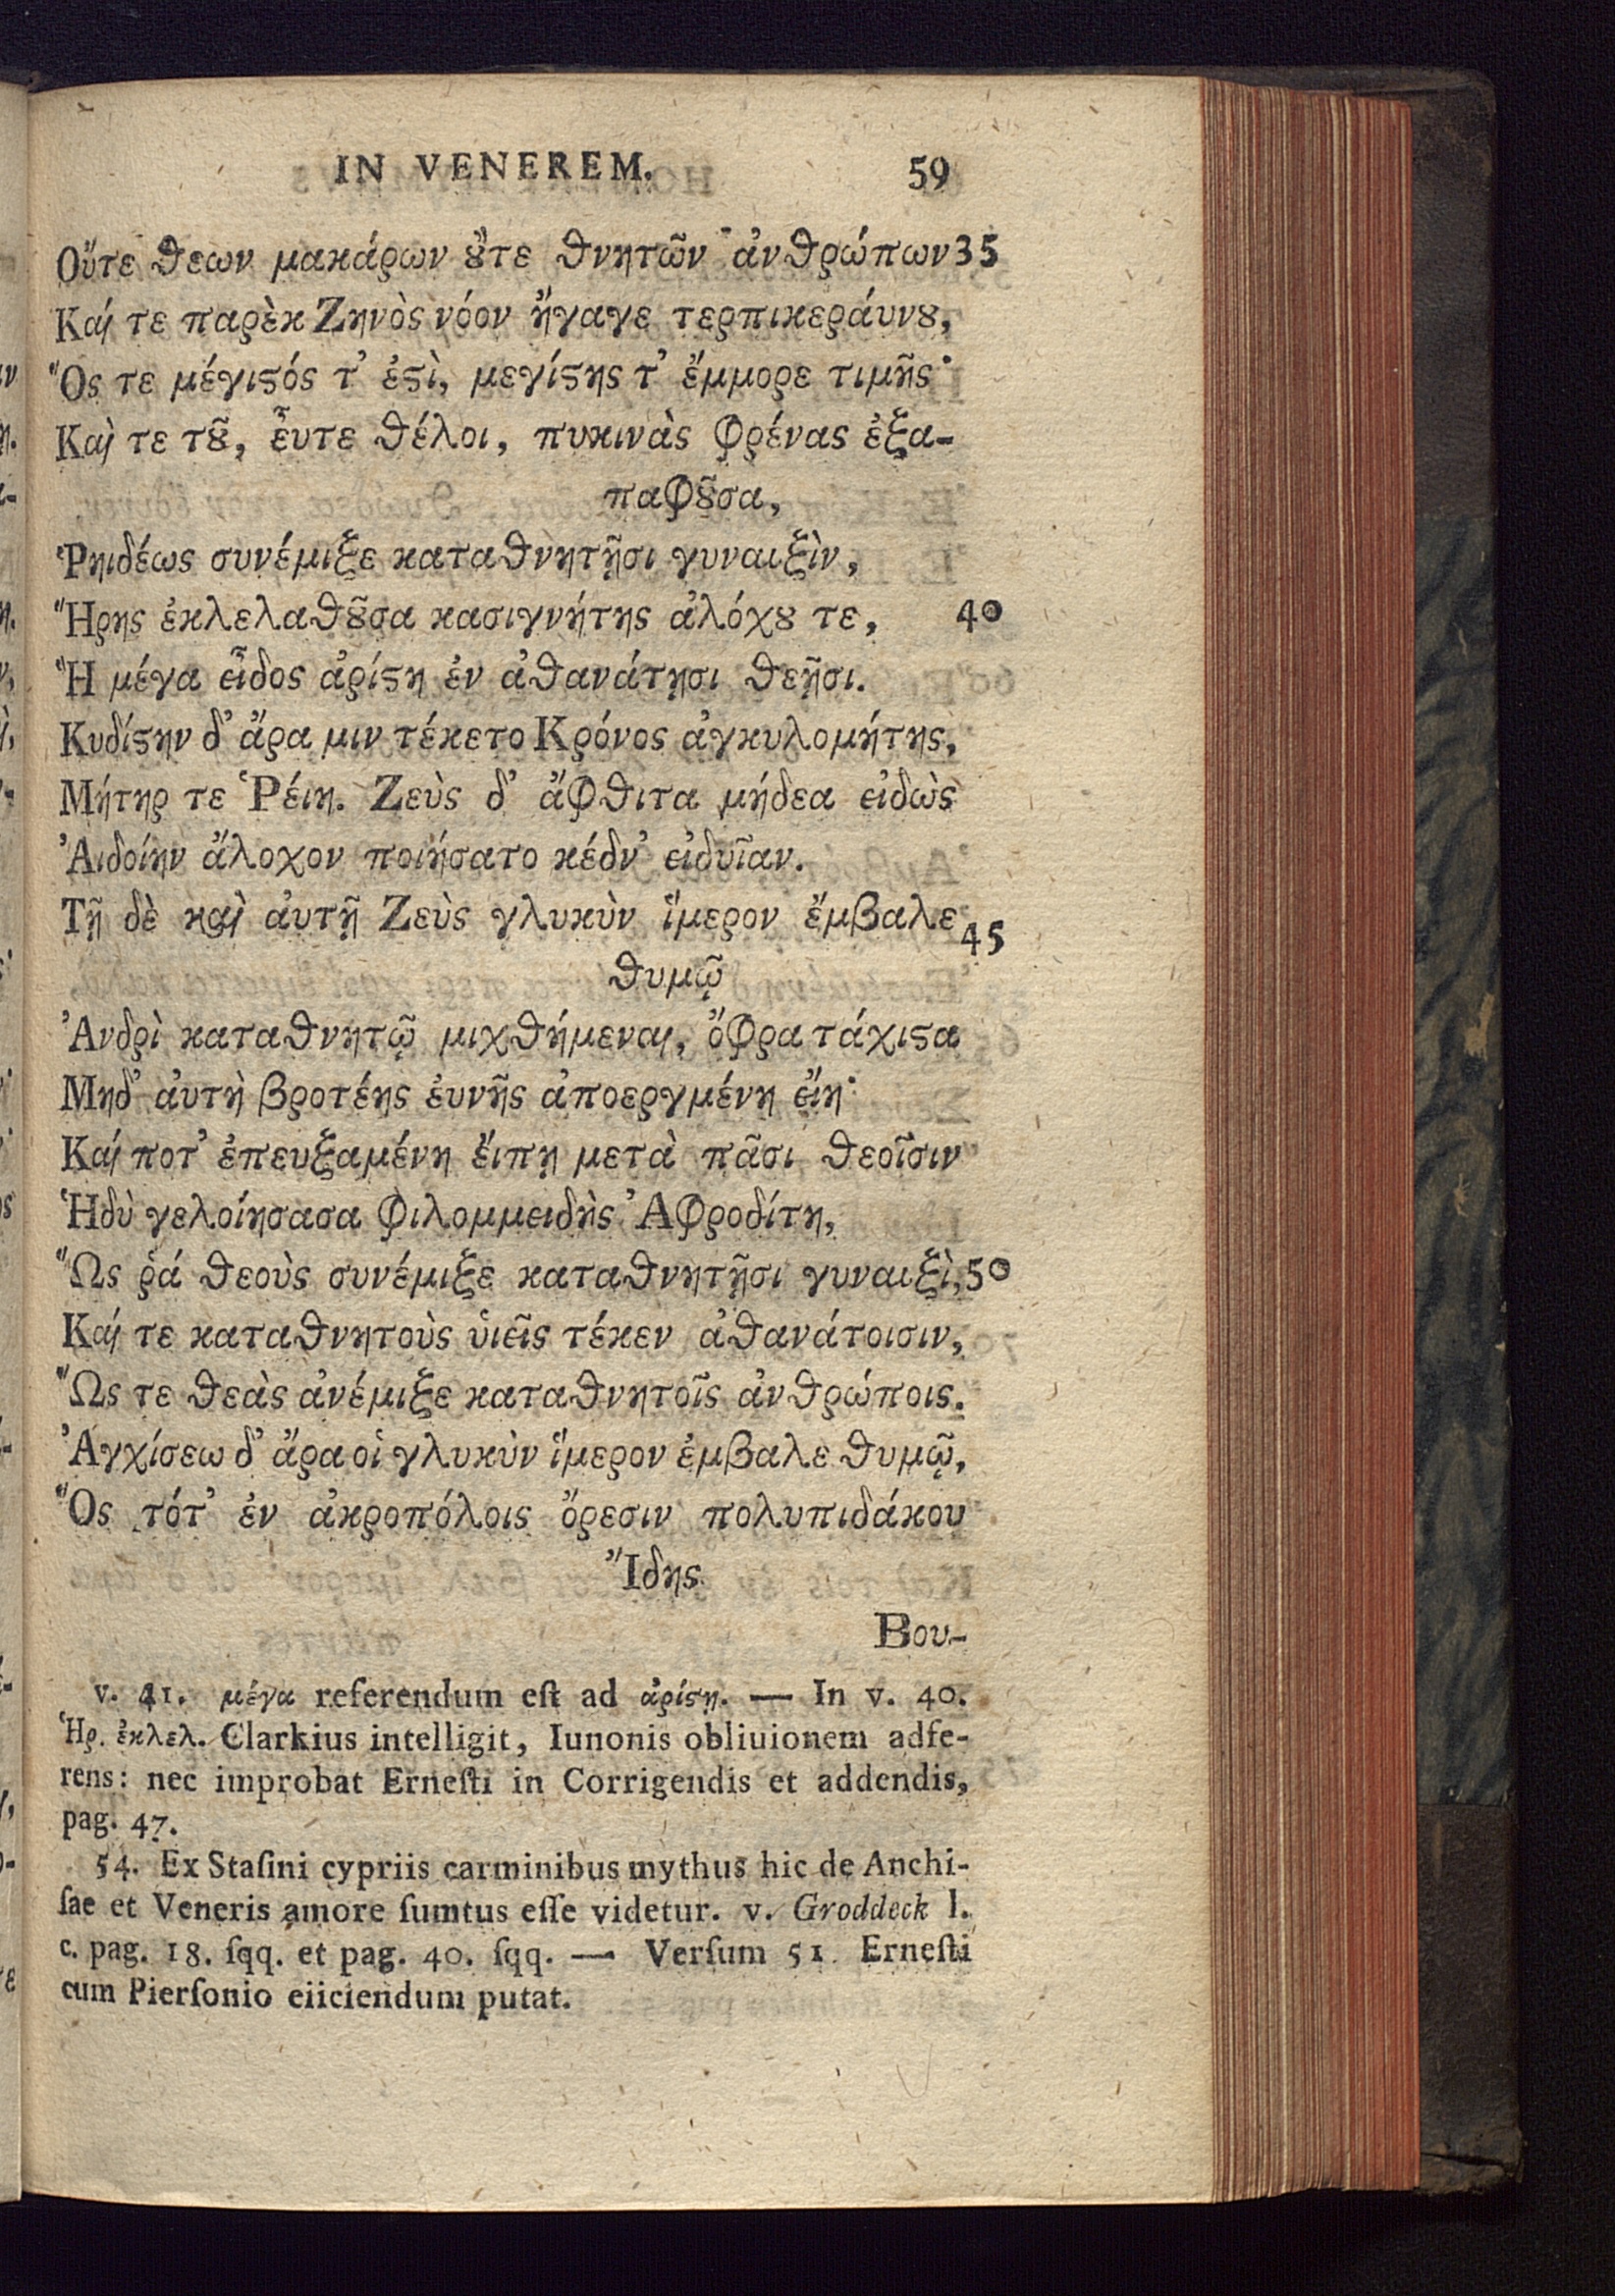 IN VENEREM. 59
Οὔτε θεων μακάρων ȣ̓́τε θνητῶν ἀνθρώπων 35
Καί τε παρὲκ Ζηνὸς νόον ἤγαγε τερπικεράυνȣ,
Ὅς τε μέγιϛός τ' ἐϛὶ, μεγίϛης τ' ἔμμορε τιμῆς·
Καὶ τε τȣ͂, ἐῦτε θέλοι, πυκινὰς φρένας ἐξα-
παφȣ͂σα,
Ῥηιδέως συνέμιξε καταθνητῇσι γυναιξὶν,
Ἥρης ἐκλελαθȣ͂σα κασιγνήτης ἀλόχȣ τε, 40
Ἣ μέγα εἶδος ἀρίϛη ἐν ἀθανάτῃσι θεῇσι.
Κυδίϛην δ' ἄρα μιν τέκετο Κρόνος ἀγκυλομήτης,
Μήτηρ τε Ῥέιη. Ζεὺς δ' ἄφθιτα μήδεα εἰδὼς
Ἀιδοίην ἄλοχον ποιήσατο κέδν' εἰδυῖαν.
Τῇ δὲ καὶ ἀυτῇ Ζεὺς γλυκὺν ἵμερον ἔμβαλε 45
θυμῷ
Ἀνδρὶ καταθνητῷ μιχθήμεναι, ὄφρα τάχιϛα
Μηδ' ἀυτὴ βροτέης ἐυνῆς ἀποεργμένη εἴη·
Καί ποτ' ἐπευξαμένη ἔιπῃ μετὰ πᾶσι θεοῖσιν
Ἡδὺ γελοίησασα φιλομμειδὴς Ἀφροδίτη,
Ὥς ῥά θεοὺς συνέμιξε καταθνητῇσι γυναιξὶ, 50
Καί τε καταθνητοὺς ὑιεῖς τέκεν ἀθανάτοισιν,
Ὥς τε θεὰς ἀνέμιξε καταθνητοῖς ἀνθρώποις.
Ἀγχίσεω δ' ἄρα οἱ γλυκὺν ἵμερον ἐμβαλε θυμῷ,
Ὃς τότ' ἐν ἀκροπόλοις ὄρεσιν πολυπιδάκου
Ἴδης
Βου-
v. 41. μέγα referendum eſt ad ἀρίϛη. — In v. 40.
Ἡρ. ἐκλελ. Clarkius intelligit, Iunonis obliuionem adfe-
rens: nec improbat Erneſti in Corrigendis et addendis,
pag. 47.
54. Ex Staſini cypriis carminibus mythus hic de Anchi-
ſae et Veneris amore ſumtus eſſe videtur. v. Groddeck l.
c. pag. 18. ſqq. et pag. 40. ſqq. — Verſum 51 Erneſti
cum Pierſonio eiiciendum putat.